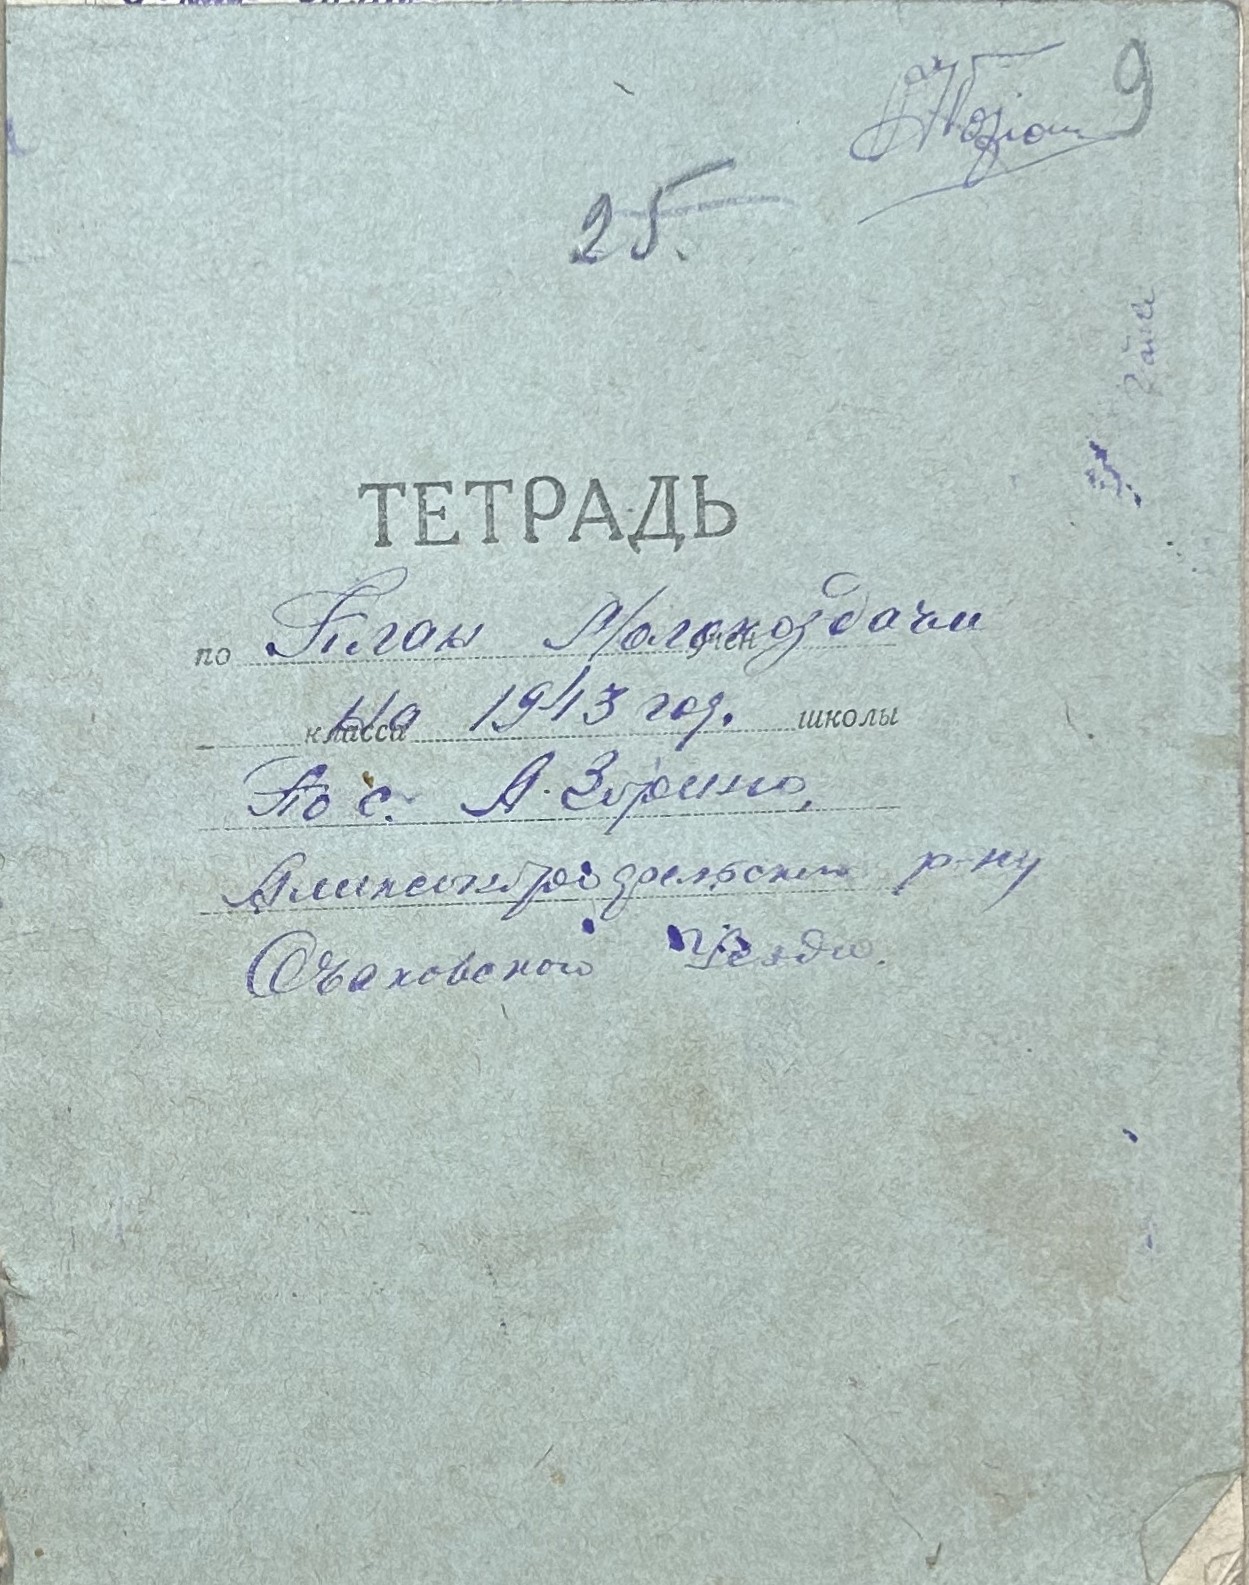 9
25.
ТЕТРАДЬ
по План Молокоздачи
класса на 1943 год. школы
По с. А. Зорино,
р-ну
Очаковского Уезда.